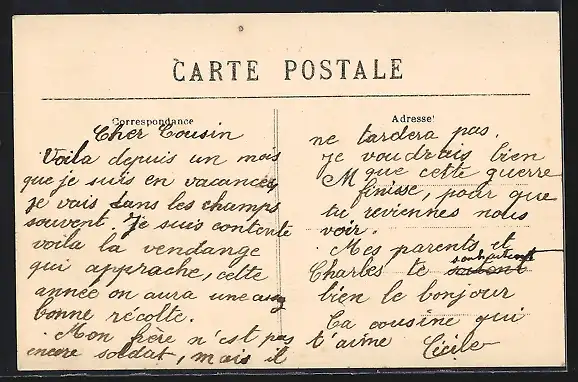 CARTE POSTALE
Correspondance
Cher Cousin
Voila depuis un mois
que je suis en vacances,
je vais dans les champs
souvent. Je suis contente
voila la vendange
qui approche, cette
année on aura une assez
bonne récolte.
Mon frère n'est pas
encore soldat, mais il
Adresse
ne tardera pas.
Je voudrais bien
que cette guerre
M finisse, pour que
tu reviennes nous
voir.
Mes parents et
Charles te souhaitent
bien le bonjour
Ta cousine qui
t'aime Cécile